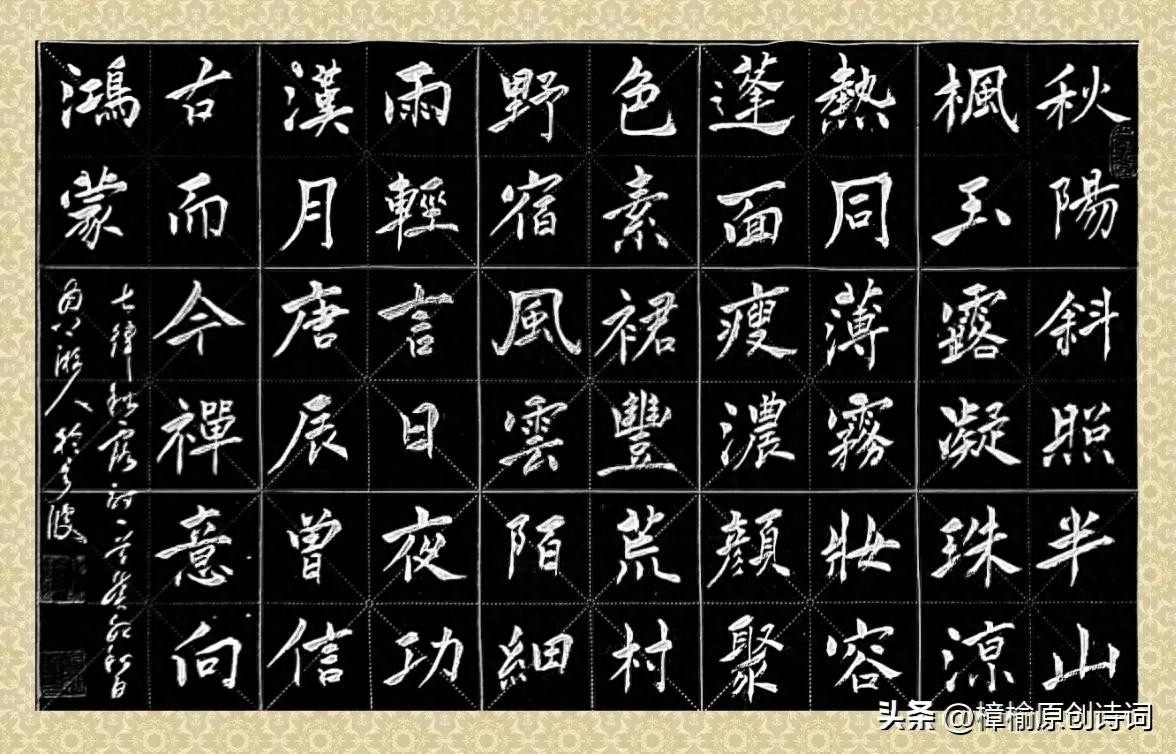 秋陽斜照半山
楓玉露凝珠涼
熱同薄霧妝容
蓬面瘦濃顏聚
色素裙豐荒村
野宿風雲陌細
雨輕言日夜功
漢月唐辰曾信
古而今禪意向
鴻蒙
七律秋露詩一首癸卯秋日
游人於寧波
头条 @樟榆原创诗词